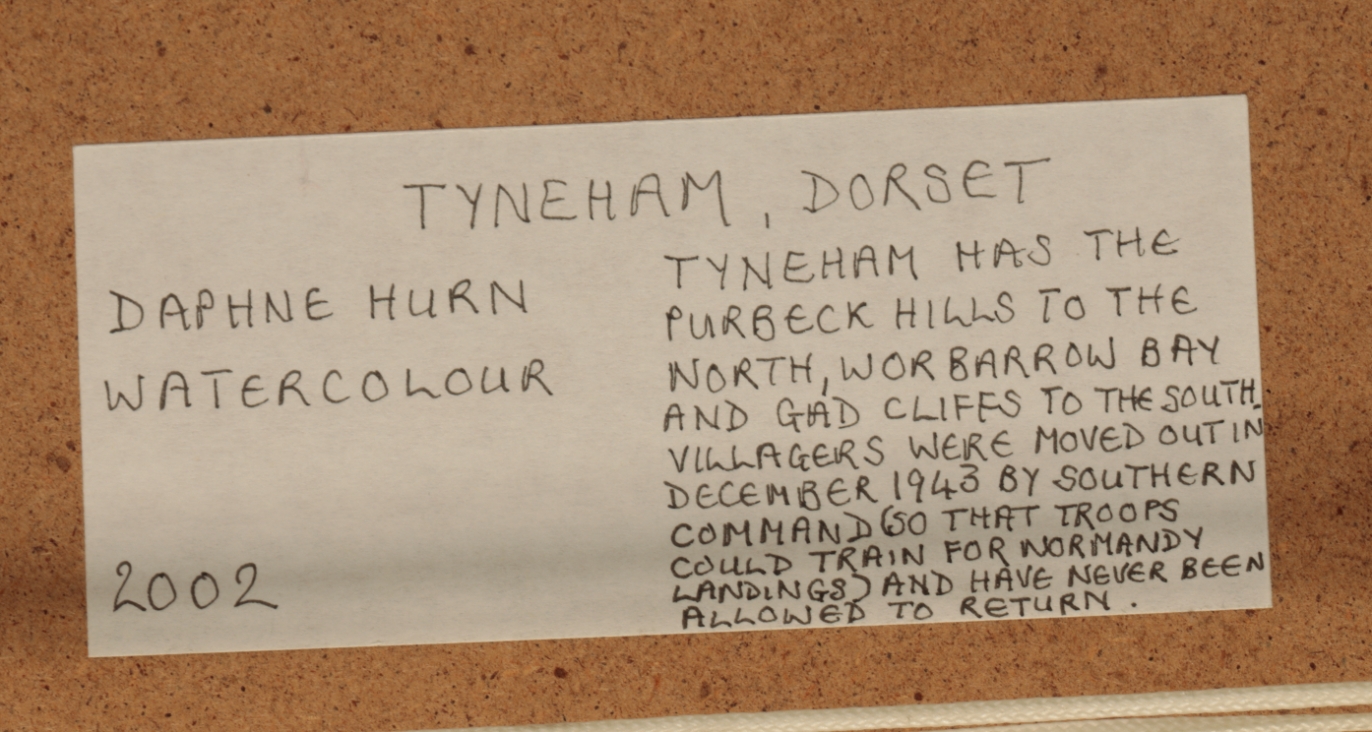 TYNEHAM, DORSET
DAPHNE HURN
WATERCOLOUR
2002
TYNEHAM HAS THE
PURBECK HILLS TO THE
NORTH, WORBARROW BAY
AND GAD CLIFFS TO THE SOUTH.
VILLAGERS WERE MOVED OUT IN
DECEMBER 1943 BY SOUTHERN
COMMAND (SO THAT TROOPS
COULD TRAIN FOR NORMANDY
LANDINGS) AND HAVE NEVER BEEN
ALLOWED TO RETURN.